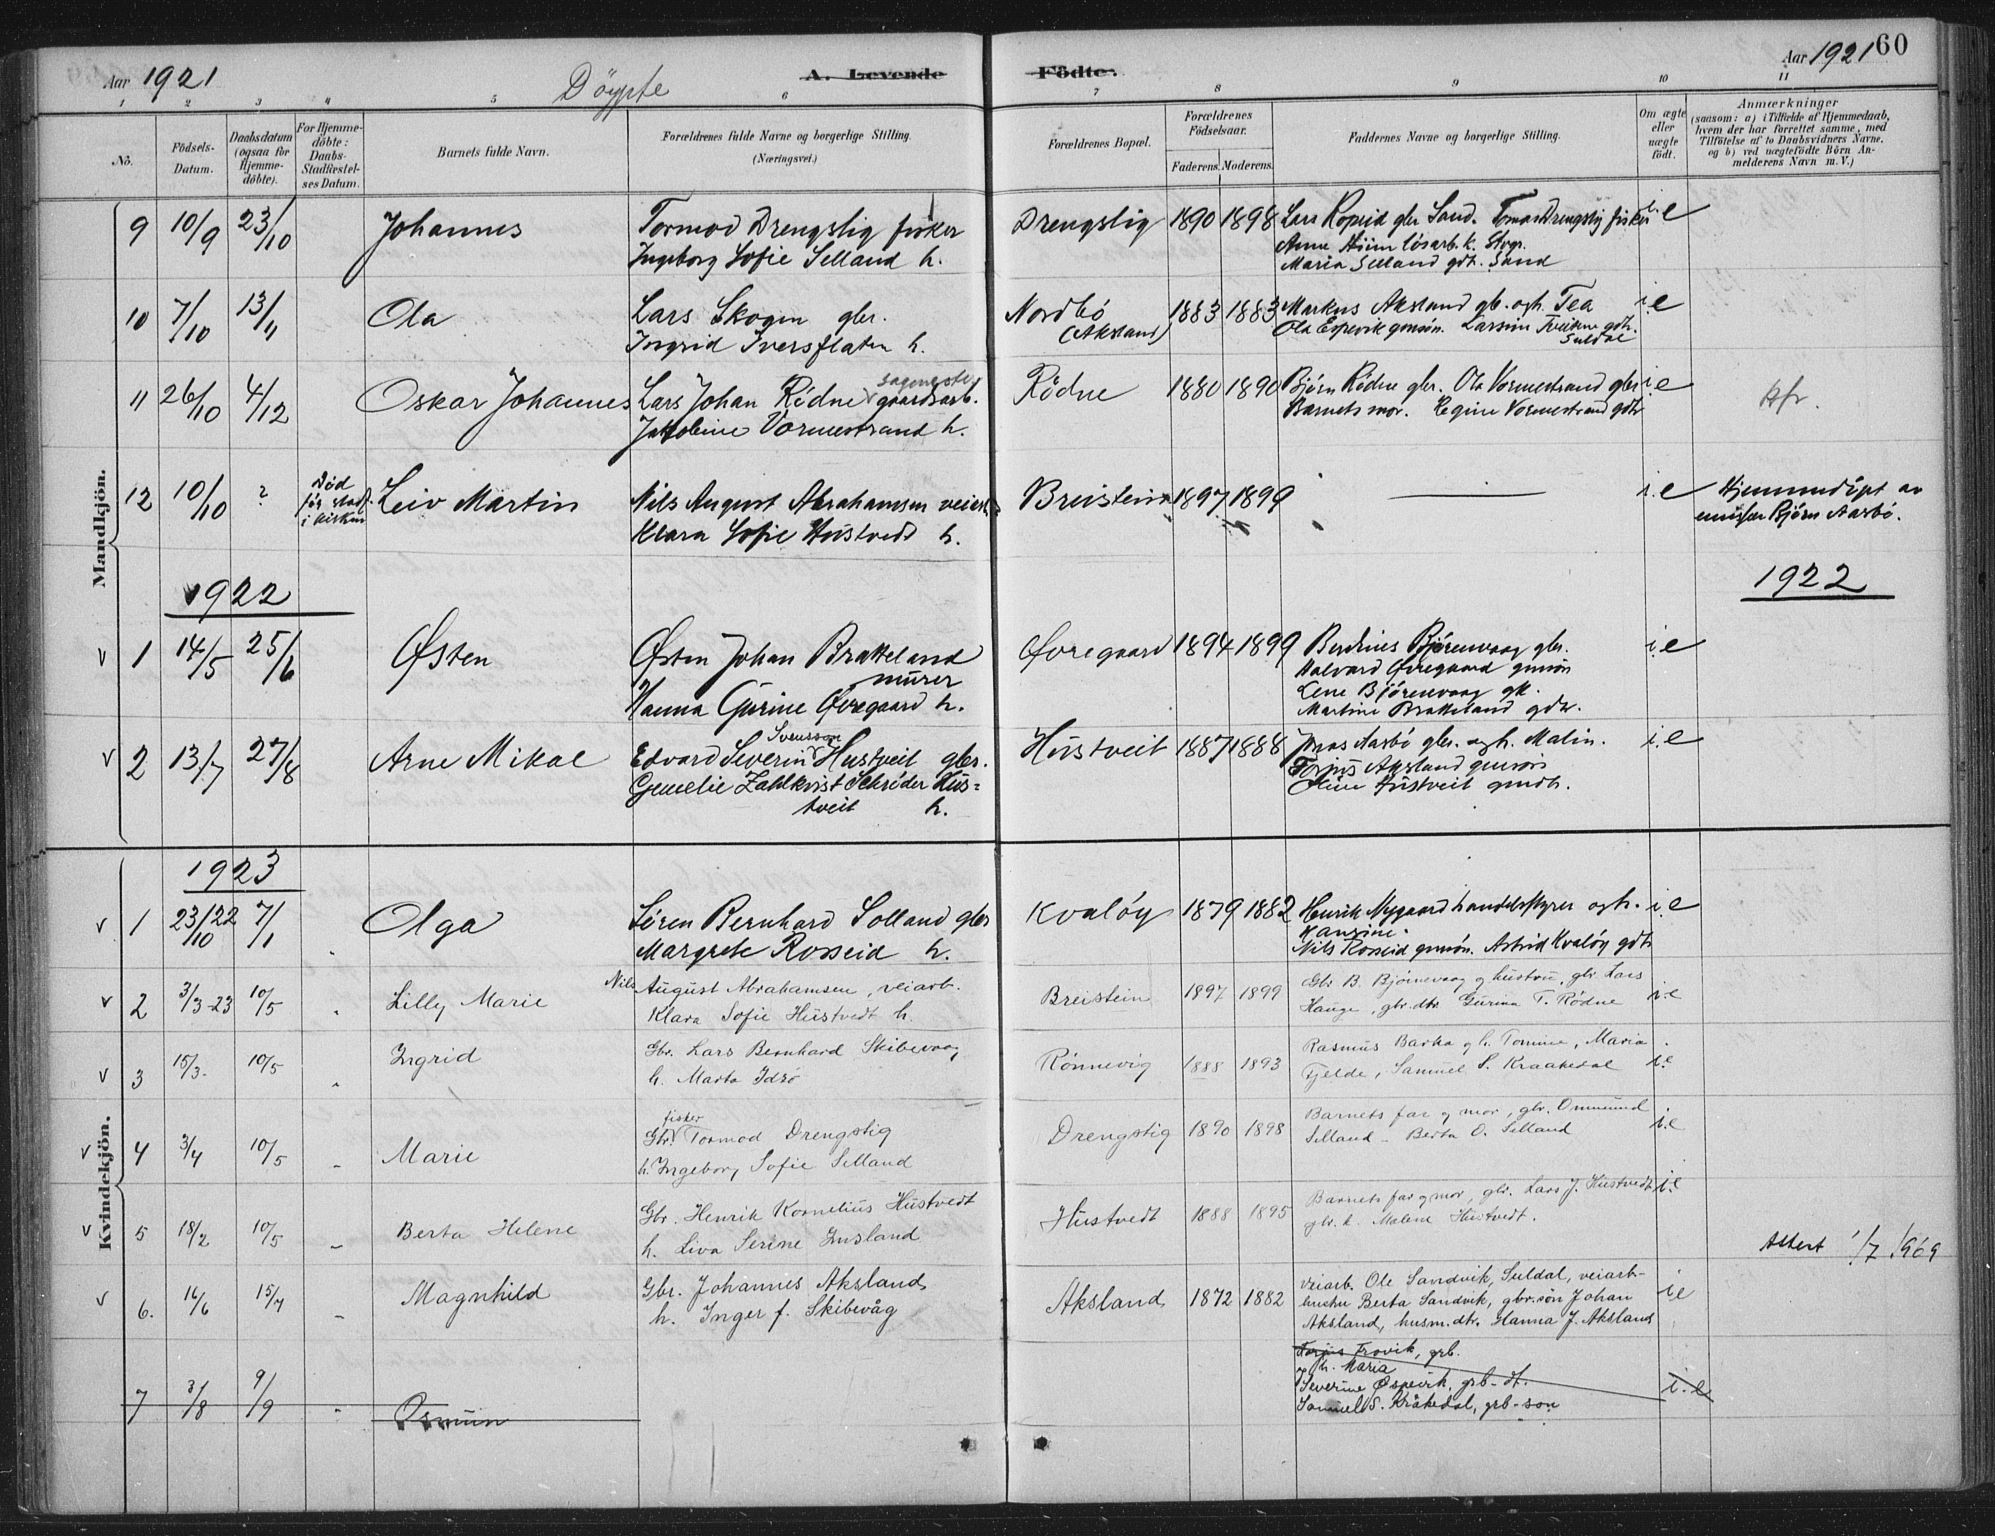 Aar 1921
Døypte
A. Levende Födte.
Aar 1921 60
1 2 3 4 5 6 7 8 9 10 11
No.
Födsels-Datum.
Daabsdatum (ogsaa for Hjemme-döbte).
For Hjemme-döbte: Daabs-Stadfestel-ses Datum.
Barnets fulde Navn.
Forældrenes fulde Navne og borgerlige Stilling.
(Næringsvei.)
Forældrenes Bopæl.
Forældrenes Födselsaar.
Faderens. Moderens.
Faddernes Navne og borgerlige Stilling.
Om ægte eller uægte födt.
Anmærkninger
(saasom: a) i Tilfælde af Hjemmedaab, hvem der har forrettet samme, med Tilföielse af to Daabsvidners Navne, og b) ved uægtefödte Börn An-melderens Navn m. V.)
Mandkjön.
9 10/9 23/10 Johannes Tormod Drengstig fisker Drengstig 1890 1898 Lars Roseid gbr Sand. Tormod Drengstig fisker i.e
Ingeborg Sofie Selland h. Anne Hiim løsarb.k. Stvgr.
Maria Selland gdt. Sand
10 7/10 13/11 Ola Lars Skogen gbr. Nordbö 1883 1883 Markus Aksland gbr. og h. Tea i.e
Ingrid Iversflaten h. (Aksland) Ola Espevik gmsøn. Larsine Tveitane gdt.
Suldal
11 26/10 4/12 Oskar Johannes Lars Johan Rödne gaardsarb. Rödne 1880 1890 Bjørn Rödne gbr. Ola Vormestrand gbr i.e
Jakobine Vormestrand h. Barnets mor. Regine Vormestrand gdt
12 10/10 ? Død før stadf. i kirken Leiv Martin Nils August Abrahamsen veiarb. Breistein 1897 1899 i.e Hjemmedöpt av
Klara Sofie Hustvedt h. emissær Bjørn Aasbö.
1922 1922
v 1 14/5 25/6 Østen Østen Johan Brakkeland Øvregaard 1894 1899 Berdines Bjørenvaag gbr. i.e
murer Halvard Øvregaard gmsøn
Hanna Gurine Øvregaard h. Lene Bjørenvaag gk.
Martine Brakkeland gdtr.
v 2 13/7 27/8 Arne Mikal Edvard Severin Svensson Hustveit gbr. Hustveit 1887 1888 Jonas Aasbö gbr. og h. Malin. i.e
Gemelie Zahlkvist Schröder Hus= Torjus Aksland gmsøn
tveit h. Oline Hustveit gmdt.
Kvindekjön.
1923
v 1 23/10 22 7/1 Olga Sören Bernhard Solland gbr Kvalöy 1879 1882 Henrik Nygaard handelsstyrer og h. i.e
Margrete Rosseid h. Hansine.
Nils Rosseid gmsøn. Astrid Kvalöy gdt
v 2 3/3-23 10/5 Lilly Marie Nils August Abrahamsen, veiarb. Breistein 1897 1899 Gbr B. Bjørnevaag og hustru, gbr Lars i.e
Klara Sofie Hustvedt h. Hauge, gbr.dtr Gurina T. Rødne
v 3 15/3 10/5 Ingrid Gbr. Lars Bernhard Skibevaag Rönnevig 1888 1893 Rasmus Barka og h. Tomine, Maria i.e
h. Marta Idsø Fjelde, Samuel S. Kraakedal
v 4 3/4 10/5 Marie Gbr. fisker Tormod Drengstig Drengstig 1890 1898 Barnets far og mor, gbr. Ommund i.e
h. Ingeborg Sofie Selland Selland - Berta O. Selland
v 5 18/2 10/5 Berta Helene Gbr. Henrik Kornelius Hustvedt Hustvedt 1888 1895 Barnets far og mor, gbr. Lars J. Hustvedt i.e
h. Liva Serine Imsland gbr.k. Malene Hustvedt. Attert 1/7 1969
v 6. 16/6 15/7 Magnhild Gbr. Johannes Aksland Aksland 1872 1882 Veiarb. Ole Sandvik, Suldal, veiarb- i.e
h. Inger f. Skibevåg hustru Berta Sandvik, gbr.søn Johan
Aksland, husm.dtr. Hanna J. Aksland
7 3/8 9/9 Osmun Torjus Trovik, grb. i.e
og h. Maria
Severine Øspevik, grb-dt.
Samuel S. Kråkedal, grb-son